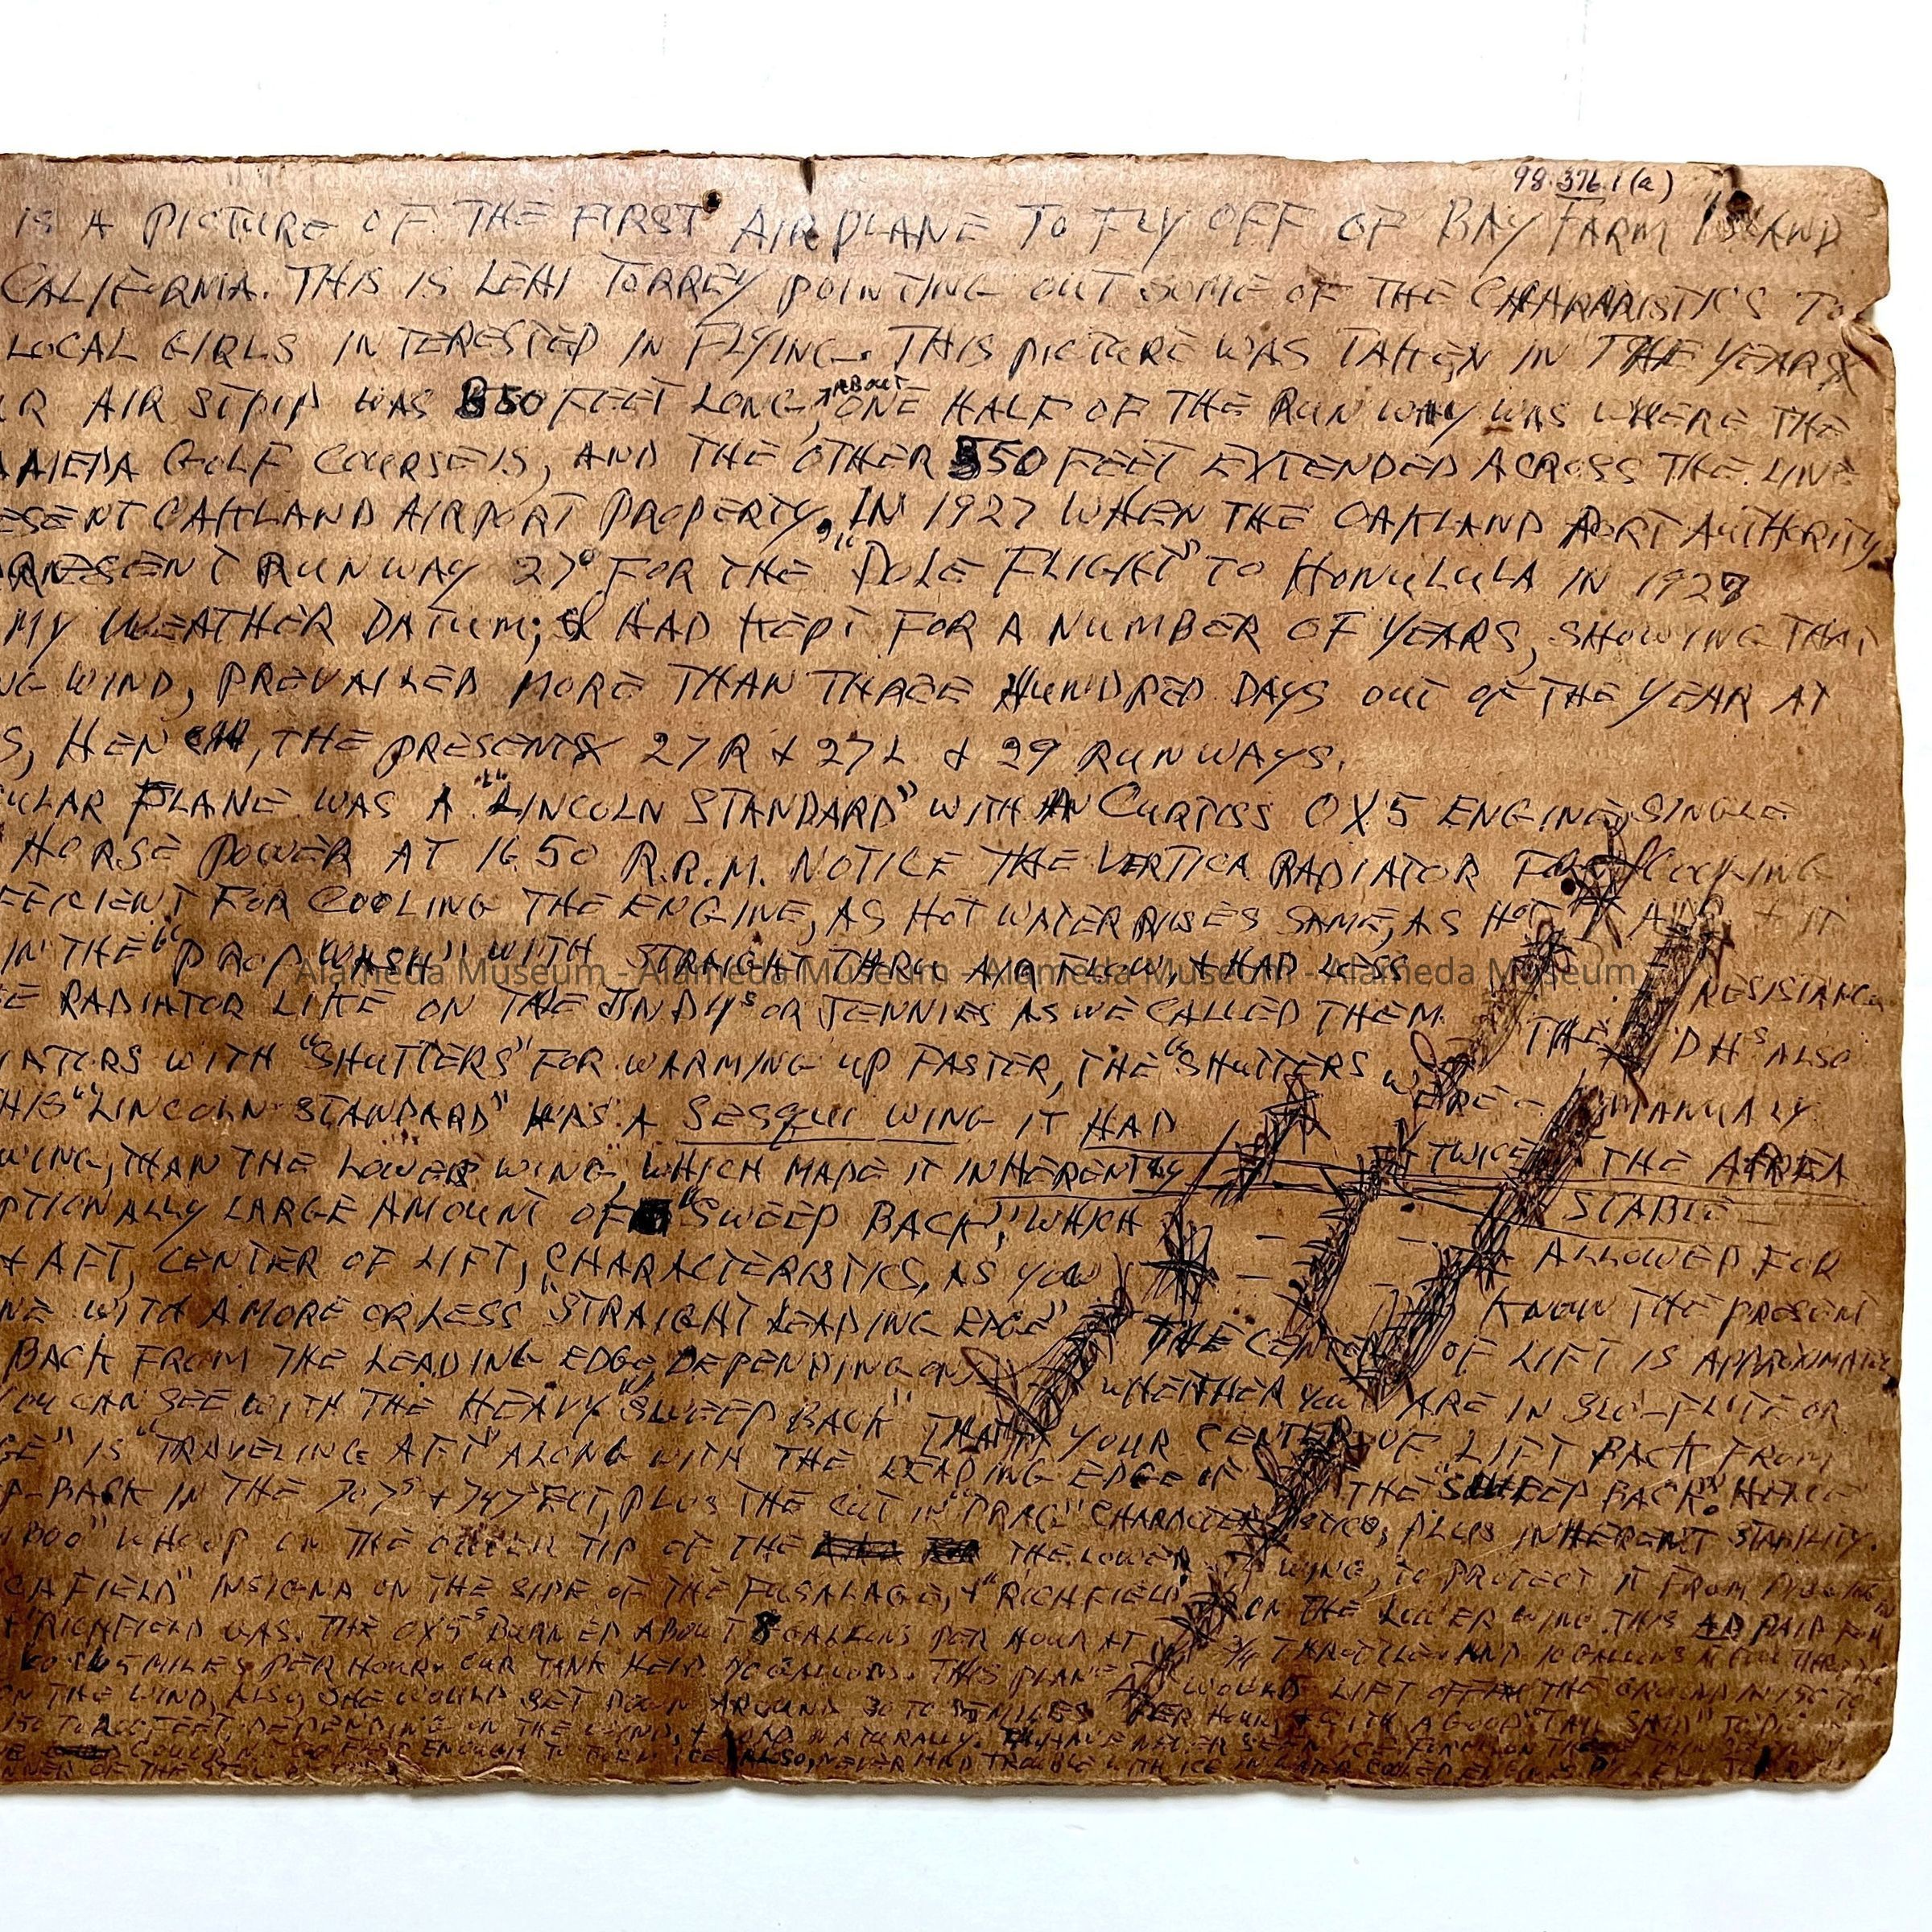 98.376.1(a)
IS A PICTURE OF THE FIRST AIRPLANE TO FLY OFF OF BAY FARM ISLAND
CALIFORNIA. THIS IS LEHI TORREY POINTING OUT SOME OF THE TO
LOCAL GIRLS INTERESTED IN FLYING. THIS PICTURE WAS TAKEN IN THE YEARS
AIR STRIP WAS 550 FEET LONG, ABOUT ONE HALF OF THE RUN WAY WAS WHERE THE
GOLF COURSE IS, AND THE OTHER 550 FEET EXTENDED ACROSS THE LINE
ESENT OAKLAND AIRPORT PROPERTY, IN 1927 WHEN THE OAKLAND PORT AUTHORITY
PRESENT RUNWAY 27° FOR THE "DOLE FLIGHT" TO HONULULA IN 1927
MY WEATHER DATUM; I HAD KEPT FOR A NUMBER OF YEARS, SHOWING THAT
NG WIND, PREVAILED MORE THAN THREE HUNDRED DAYS OUT OF THE YEAR AT
S, THE PRESENT 27R & 27L & 29 RUNWAYS.
CULAR PLANE WAS A "LINCOLN STANDARD" WITH AN CURTISS OX5 ENGINE, SINGLE
HORSE POWER AT 1650 R.P.M. NOTICE THE VERTICA RADIATOR FOR COOLING
FFICIENT FOR COOLING THE ENGINE, AS HOT WATER RISES SAME, AS HOT AIR & IT
IN THE "PROP WASH" WITH STRAIGHT THRU AIR FLOW, & HAD LESS
Alameda Museum - Alameda Museum - Alameda Museum - Alameda Museum
RESISTANCE
E RADIATOR LIKE ON THE OR JENNIES AS WE CALLED THEM. THE DHS ALSO
IATORS WITH "SHUTTERS" FOR WARMING UP FASTER, THE "SHUTTERS WERE - MANUALY
HIS "LINCOLN STANDARD" WAS A SESQUI WING IT HAD TWICE THE AREA
WING, THAN THE LOWER WING, WHICH MADE IT INHERENTLY STABLE
PTIONALLY LARGE AMOUNT OF "SWEEP BACK", WHICH ALLOWED FOR
& AFT, CENTER OF LIFT, CHARACTERISTICS, AS YOU KNOW THE PRESENT
NE WITH A MORE OR LESS "STRAIGHT LEADING EDGE" THE CENTER OF LIFT IS APPROXIMATLY
BACK FROM THE LEADING EDGE, DEPENDING ON WHEITHER YOU ARE IN SLO-FLITE OR
YOU CAN SEE WITH THE HEAVY "SWEEP BACK" THAT YOUR CENTER OF LIFT BACK FROM
GE" IS "TRAVELING AFT" ALONG WITH THE LEADING EDGE OF THE "SWEEP BACK". HENCE
P-BACK IN THE 707S & 747S ECT, PLUS THE CUT IN "DRAG" CHARACTERISTICS, PLUS INHERENT STABILITY.
BOO" WHOOP ON THE OUTER TIP OF THE THE LOWER WING, TO PROTECT IT FROM
CHFIELD" INSIGNA ON THE SIDE OF THE FUSALAGE, & "RICHFIELD" ON THE LOWER WING. THIS AD PAID FOR
& RICHFIELD GAS. THE OX5S BURNED ABOUT 8 GALLONS PER HOUR AT 3/4 THROTTLE AND 10 GALLONS AT
MILES PER HOUR. OUR TANK HELD GALLONS. THIS PLANE WOULD LIFT OFF THE GROUND IN 150 TO
ON THE WIND, ALSO, SHE WOULD SET DOWN AROUND 30 TO MILES PER HOUR, & WITH A GOOD "TAIL SKID" TO
150 TO FEET DEPENDING ON THE WIND, NATURALLY. NEVER SEEN ICE FORM ON
FAST ENOUGH TO FORM ICE. ALSO, NEVER HAD TROUBLE WITH ICE IN WATER COOLED ENGINES